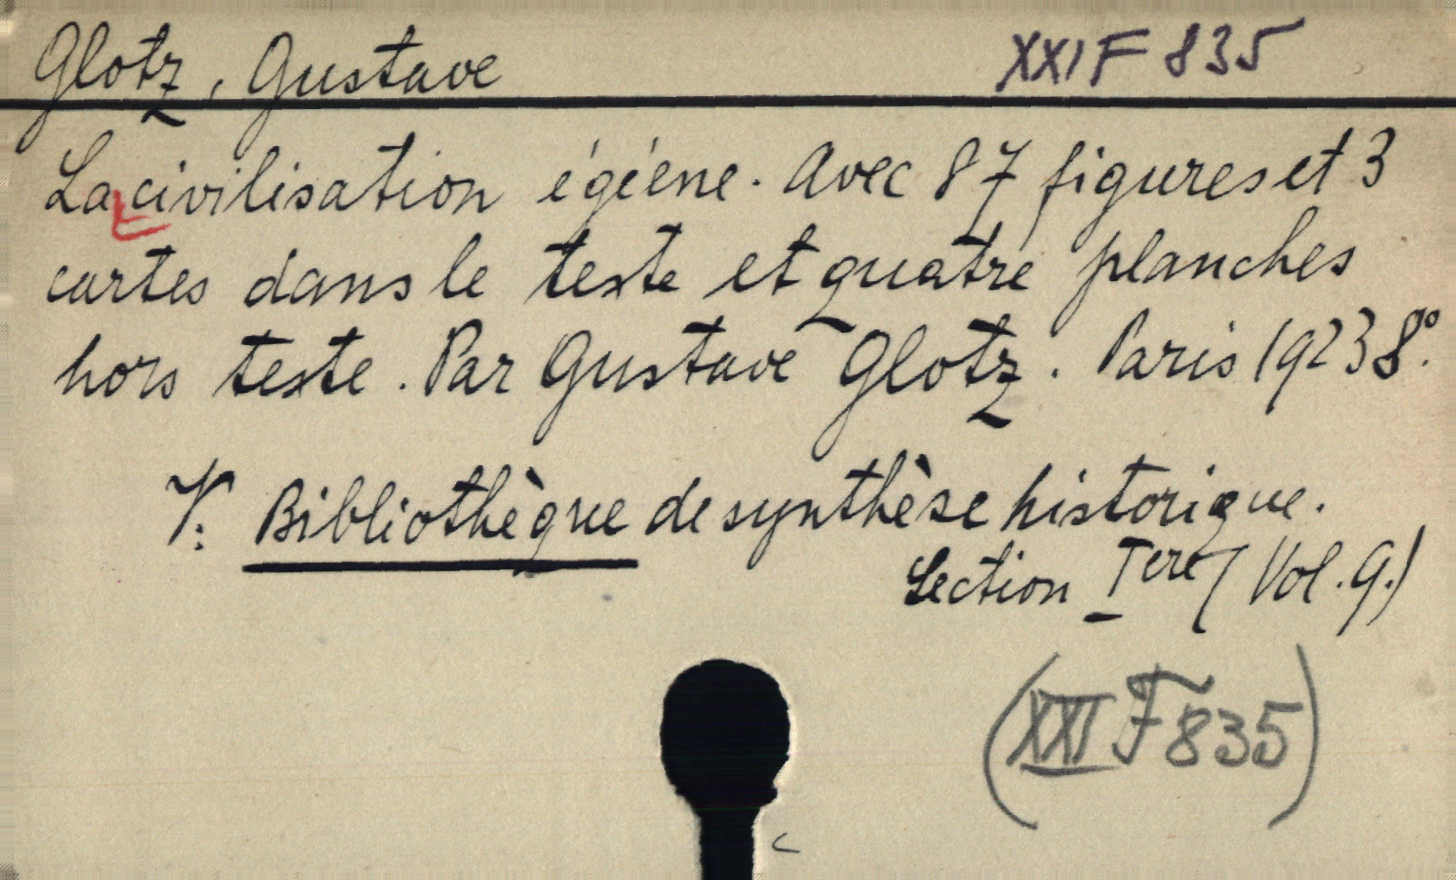 Glotz, Gustave XXI F 835
La civilisation égéene. Avec 87 figures et 3
cartes dans le texte et quatre planches
hors texte. Par Gustave Glotz. Paris 1923 8°.
V: Bibliothèque de synthèse historique.
Section Iere (Vol. 9.)
(XXI F 835)